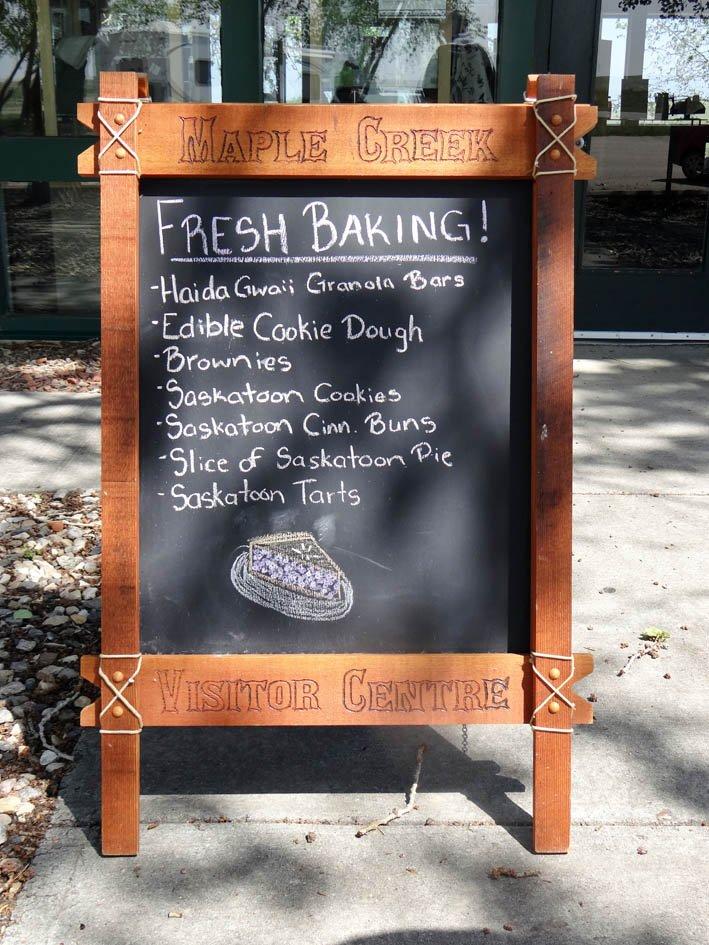 MAPLE CREEK
FRESH BAKING!
-Haida Gwaii Granola Bars
-Edible Cookie Dough
-Brownies
-Saskatoon Cookies
-Saskatoon Cinn. Buns
-Slice of Saskatoon Pie
-Saskatoon Tarts
VISITOR CENTRE